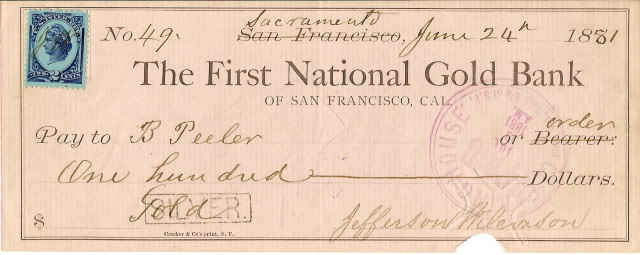 Sacramento
No. 49. San Francisco, June 24th 1881
The First National Gold Bank
OF SAN FRANCISCO, CAL.
order
Pay to B Peeler or Bearer:
One hundred Dollars.
Gold SILVER.
$ Jefferson Wilcoxson
Crocker & Co's print, S. F.